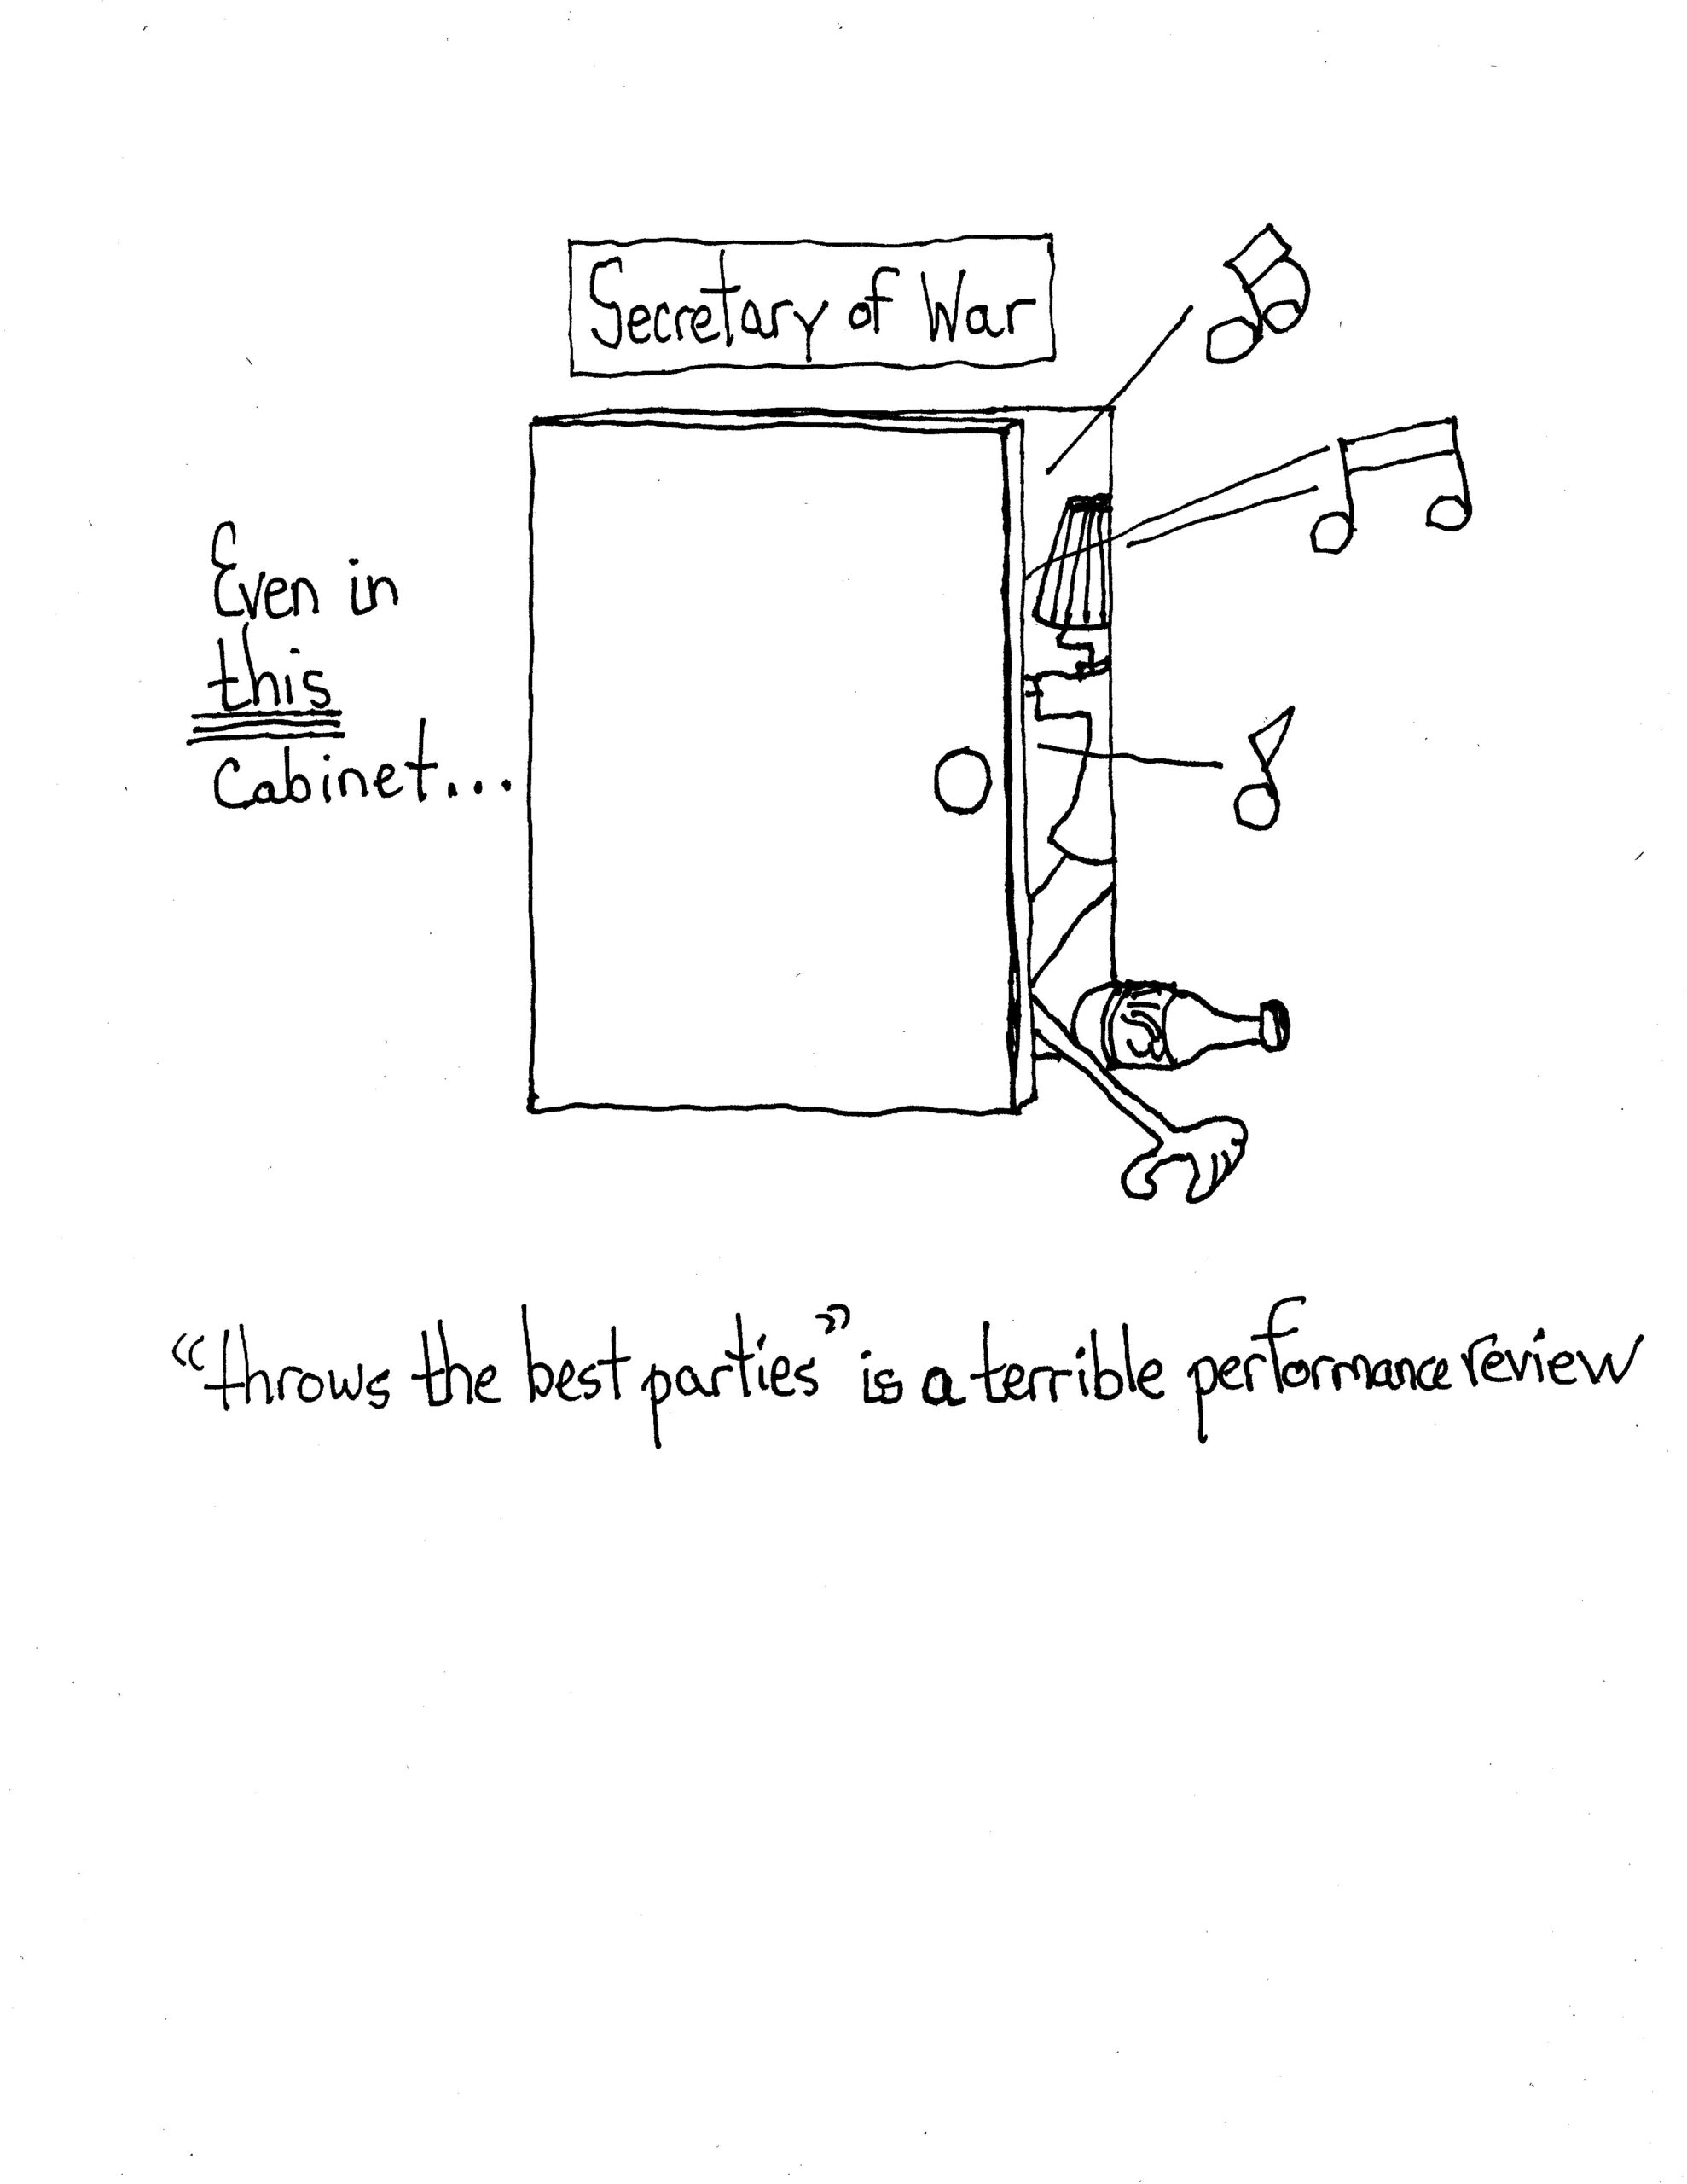 Secretary of War
Even in
this
Cabinet...
"throws the best parties" is a terrible performance review